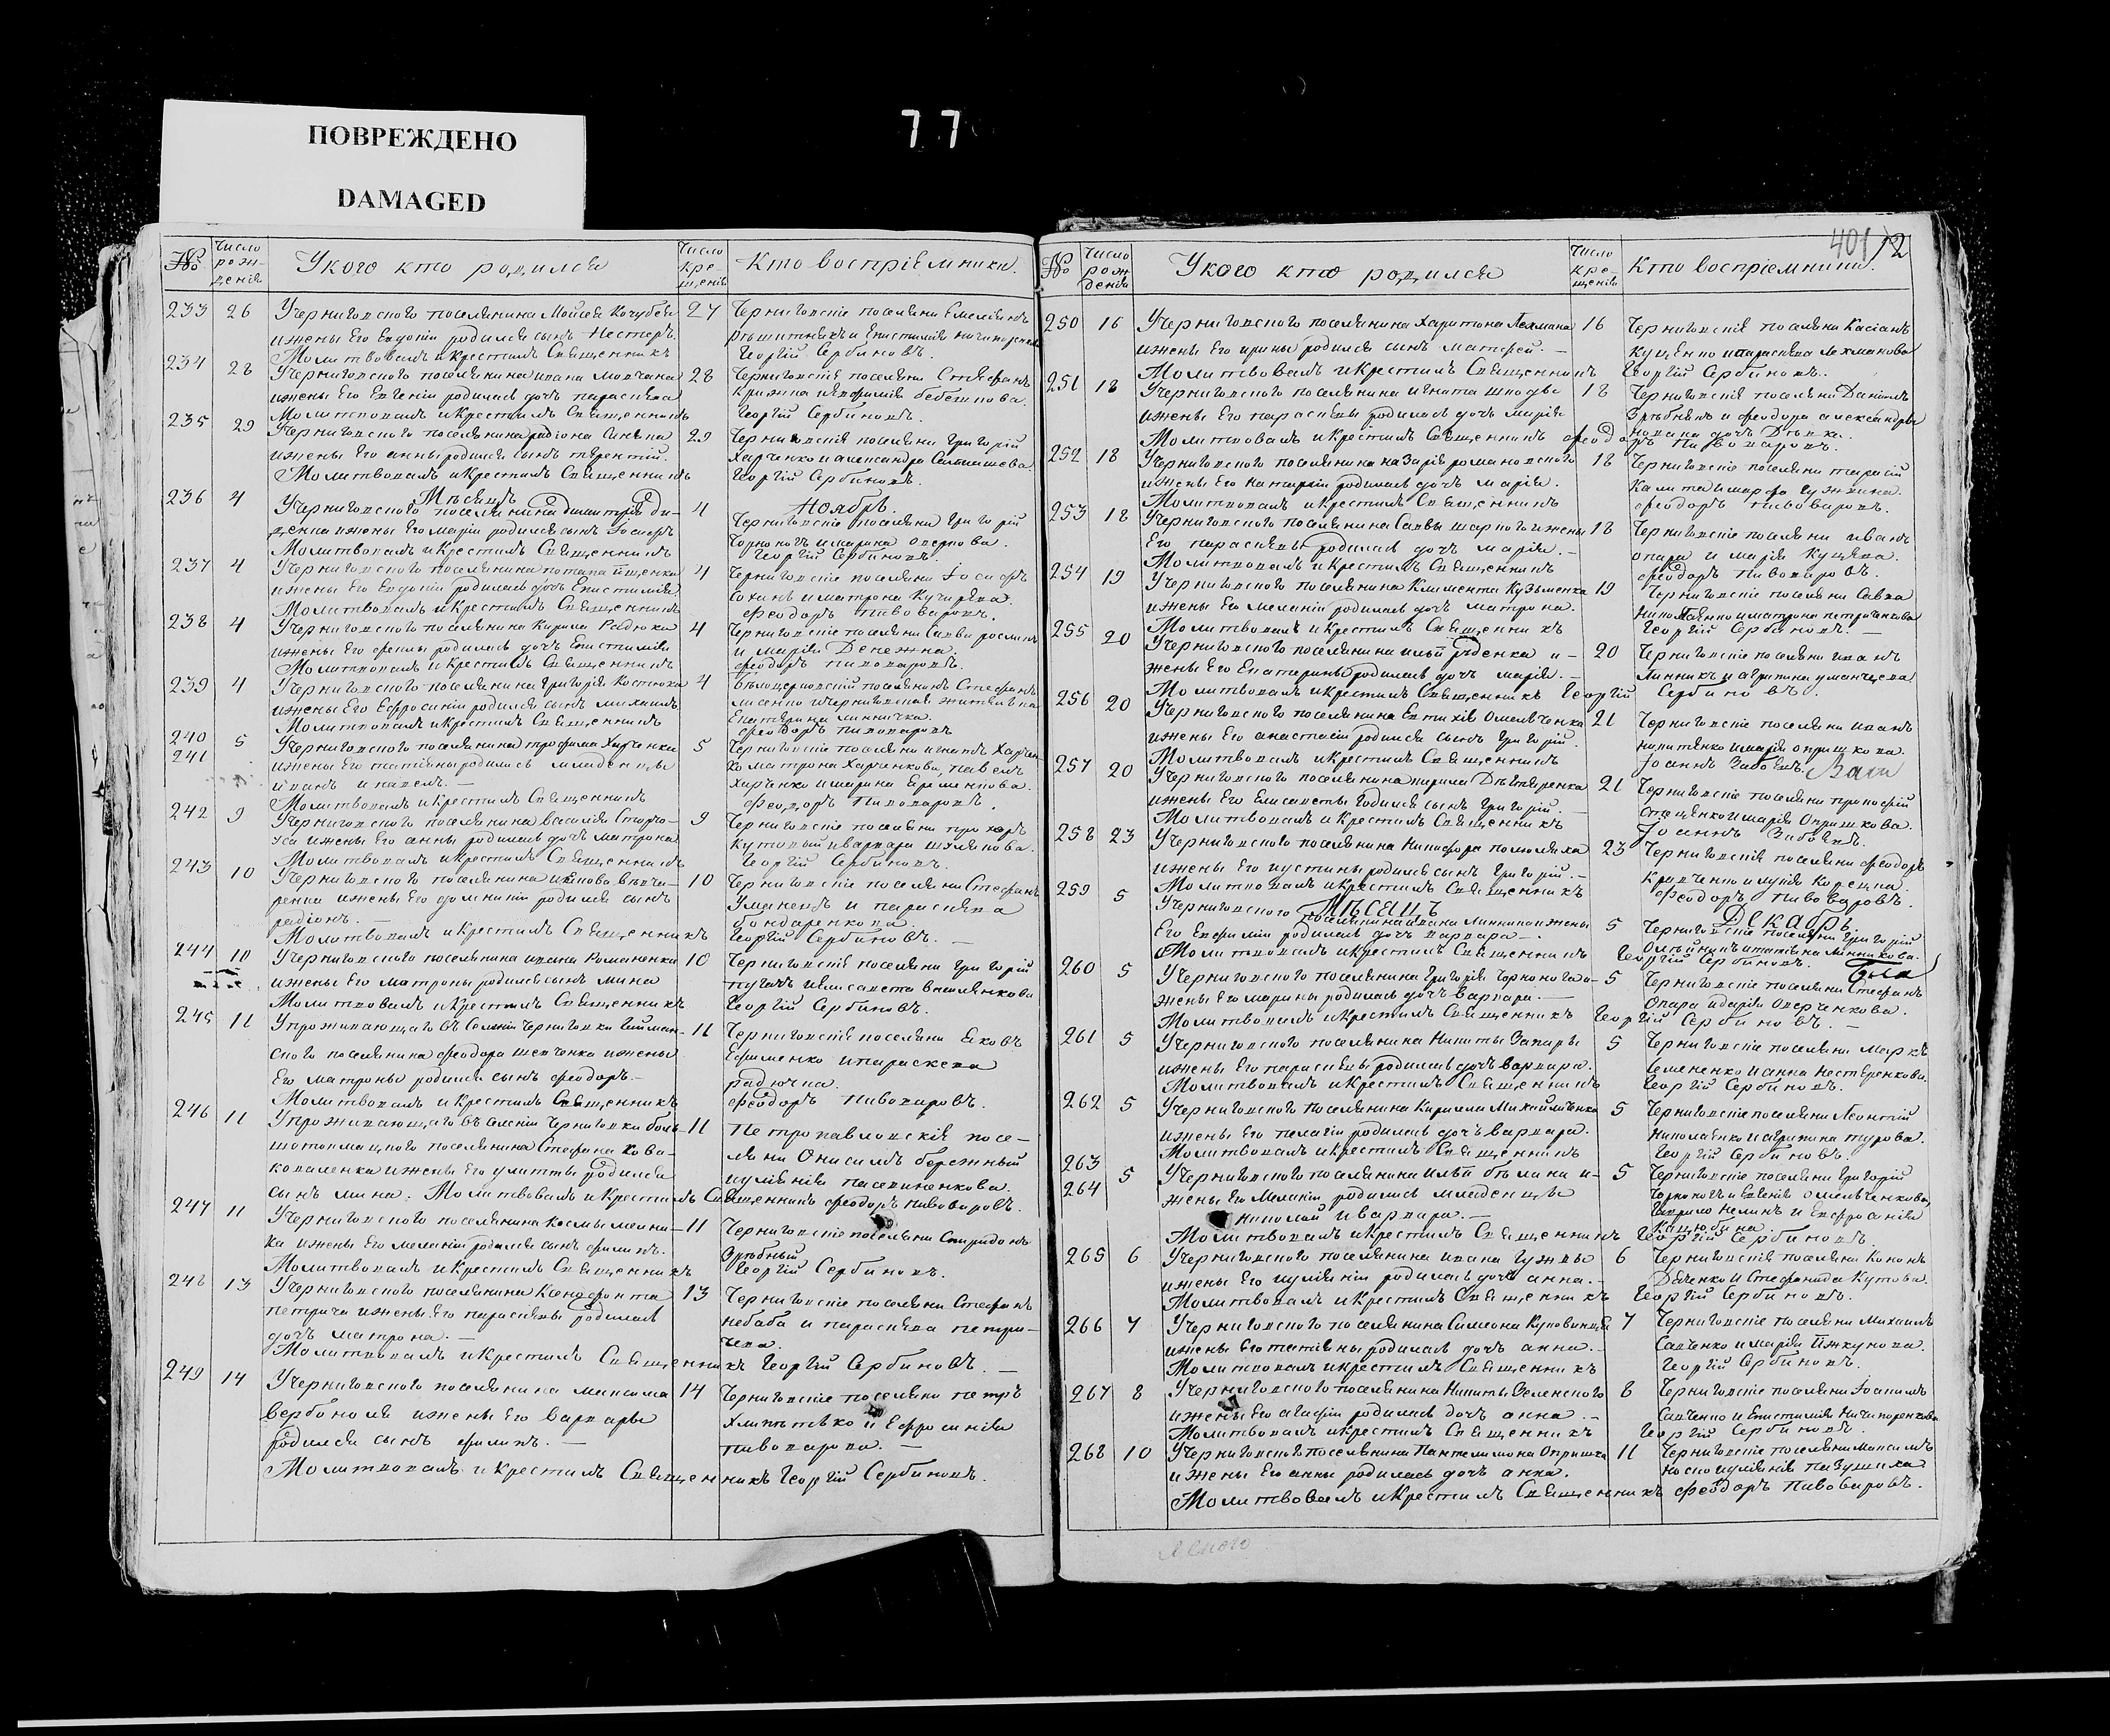 ПОВРЕЖДЕНО
DAMAGED
77
№
Число рожденія
У кого кто родился
Число крещенія
Кто воспріемники.
233 26 У черниговского поселянина Моисея Кочубея 27 Черниговскіе поселяни Емеліянъ
и жены Его Евдокіи родился сынъ Несторъ.
Молитвовалъ и крестилъ Священникъ Георгій Сербиновъ.
234 28 У черниговского поселянина ивана мовчана 28 Черниговскіе поселяни Стефанъ
и жены Его Евгеніи родилась дочь параскева
Молитвовалъ и крестилъ Священникъ Георгій Сербиновъ.
235 29 У черниговского поселянина радіона 29 Черниговскіе поселяни Григорій
и жены Его анны родился сынъ терентій. Харченко и александра
Молитвовалъ и крестилъ Священникъ Георгій Сербиновъ.
Мѣсяцъ Ноябрь.
236 4 У черниговского поселянина димитрія ди- 4 Черниговскіе поселяни Григорій
денка и жены Его маріи родился сынъ Іосифъ Чорноногъ и марина
Молитвовалъ и крестилъ Священникъ Георгій Сербиновъ.
237 4 У черниговского поселянина потапа 4 Черниговскіе поселяни Іосифъ
и жены Его Евдокіи родилась дочь Епистимія. Сохинъ и матрона
Молитвовалъ и крестилъ Священникъ Феодоръ пивоваровъ.
238 4 У черниговского поселянина Кирила Радюка 4 Черниговскіе поселяни Савва
и жены Его феклы родилась дочь Епистимія и марія Денежна.
Молитвовалъ и крестилъ Священникъ феодоръ пивоваровъ.
239 4 У черниговского поселянина Григорія Костюка 4 бѣлоцерковскій поселянинъ Стефанъ
и жены Его Ефросиніи родился сынъ михаилъ лисенко и черниговская жителька
Екатерина линничка.
Молитвовалъ и крестилъ Священникъ феодоръ пивоваровъ
240 5 У черниговского поселянина трофима Харченка 5 Черниговскіе поселяни игнатъ Харчен
241 и жены Его татіаны родились младенцы ко матрона Харченкова, павелъ
иванъ и павелъ. Харченко и марина Еременкова.
Молитвовалъ и крестилъ Священникъ Феодоръ Пивоваровъ.
242 9 У черниговского поселянина василія Сторо- 9 Черниговскіе поселяни прохоръ
жа и жены Его анны родилась дочь матрона Кутовый и варвара
Молитвовалъ и крестилъ Священникъ Георгій Сербиновъ.
243 10 У черниговского поселянина 10 Черниговскіе поселяни Стефанъ
ренка и жены Его домникіи родился сынъ Уманецъ и параскева
радіонъ. бондаренкова.
Молитвовалъ и крестилъ Священникъ Георгій Сербиновъ.
244 10 У черниговского поселянина ивана Романенка 10 Черниговскіе поселяни Григорій
и жены Его матроны родился сынъ мина пугачъ и Елисавета василенкова
Молитвовалъ и крестилъ Священникъ Георгій Сербиновъ.
245 11 У проживающаго въ Селеніи Черниговки Гайман- 11 Черниговскіе поселяни Яковъ
ского поселянина феодора шевченка и жены Ефименко и параскева
Его матроны родился сынъ феодоръ. радючка.
Молитвовалъ и крестилъ Священникъ феодоръ пивоваровъ.
246 11 У проживающаго въ Селеніи Черниговки боль- 11 Петропавловскія посе-
шотокмацкого поселянина Стефана Кова- ляни Онисимъ бережный
коваленка и жены Его улитты родился и улянія
сынъ мина. Молитвовалъ и крестилъ Священникъ феодоръ пивоваровъ.
247 11 У черниговского поселянина Космы мелни- 11 Черниговскіе поселяни Спиридонъ
ка и жены Его меланіи родился сынъ филипъ.
Молитвовалъ и крестилъ Священникъ Георгій Сербиновъ.
248 13 У черниговского поселянина Ксенофонта 13 Черниговскіе поселяни Стефанъ
петрича и жены Его параскевы родилась небаба и параскева петри-
дочь матрона. чева.
Молитвовалъ и крестилъ Священникъ Георгій Сербиновъ.
249 14 У черниговского поселянина максима 14 Черниговскіе поселяни петръ
вербоноля и жены Его варвары и Ефросинія
родился сынъ филипъ. пивоварова.
Молитвовалъ и крестилъ Священникъ Георгій Сербиновъ.
401 72
№
Число рожденія
У кого кто родился
Число крещенія
Кто воспріемники.
250 16 У черниговского поселянина Харитона Лехмана 16 Черниговскіе поселяни Касіанъ
и жены Его ирины родился сынъ матфей. Куценко и параскева лехманова
Молитвовалъ и крестилъ Священникъ Георгій Сербиновъ.
251 18 У черниговского поселянина игната шподы 18 Черниговскіе поселяни Даніилъ
и жены Его параскевы родилась дочь марія и феодора александры
Молитвовалъ и крестилъ Священникъ феодоръ пивоваровъ.
252 18 У черниговского поселянина назарія романовского 18 Черниговскіе поселяни тарасій
и жены Его наталіи родилась дочь марія. Калита и марфа гужвина.
Молитвовалъ и крестилъ Священникъ феодоръ пивоваровъ.
253 18 У черниговского поселянина Саввы шарого и жены 18 Черниговскіе поселяни иванъ
Его параскевы родилась дочь марія. опара и марія Куцева.
Молитвовалъ и крестилъ Священникъ феодоръ пивоваровъ.
254 19 У черниговского поселянина Климента Кузьменка 19 Черниговскіе поселяни Савва
и жены Его меланіи родилась дочь матрона. Николаенко и матрона петриченкова
Молитвовалъ и крестилъ Священникъ Георгій Сербиновъ.
255 20 У черниговского поселянина иліи руденка и 20 Черниговскіе поселяни иванъ
жены Его Екатерины родилась дочь марія. Линникъ и агрипина уманцева
Молитвовалъ и крестилъ Священникъ Георгій Сербиновъ.
256 20 У черниговского поселянина Евтихія Омельченка 21 Черниговскіе поселяни иванъ
и жены Его анастасіи родился сынъ Григорій. никитенко и марія опришкова.
Молитвовалъ и крестилъ Священникъ Іоаннъ Забоевъ.
257 20 У черниговского поселянина кирила Дегтяренка 21 Черниговскіе поселяни прокофій
и жены Его Елисаветы родился сынъ Григорій. стеценко и марія Опришкова.
Молитвовалъ и крестилъ Священникъ Іоаннъ Забоевъ.
258 23 У черниговского поселянина Никифора полюляха 23 Черниговскіе поселяни феодоръ
и жены Его иустины родился сынъ Григорій. Кравченко и лукія Корецка.
Молитвовалъ и крестилъ Священникъ феодоръ пивоваровъ.
Мѣсяцъ Декабрь.
259 5 У черниговского поселянина ивана Линника и жены 5 Черниговскіе поселяни Григорій
Его Евфиміи родилась дочь варвара. Олейникъ и татіана Линникова.
Молитвовалъ и крестилъ Священникъ Георгій Сербиновъ.
260 5 У черниговского поселянина Григорія Чорноного 5 Черниговскіе поселяни Стефанъ
жены Его марины родилась дочь варвара. Опара и дарія Оверченкова.
Молитвовалъ и крестилъ Священникъ Георгій Сербиновъ.
261 5 У черниговского поселянина Никиты Запары 5 Черниговскіе поселяни Маркъ
и жены Его параскевы родилась дочь варвара. Семененко и анна Нестеренкова.
Молитвовалъ и крестилъ Священникъ Георгій Сербиновъ.
262 5 У черниговского поселянина Кирилла Михайличенка 5 Черниговскіе поселяни Леонтій
и жены Его пелагіи родилась дочь варвара. николаенко и агрипина турова.
Молитвовалъ и крестилъ Священникъ Георгій Сербиновъ.
263 5 У черниговского поселянина иліи бѣлика и 5 Черниговскіе поселяни Григорій
264 жены Его Меланіи родились младенцы Чорноногъ и Евгенія омельченкова,
николай и варвара. Гаврило Нелинъ и Евфросинія
Кацюбина.
Молитвовалъ и крестилъ Священникъ Георгій Сербиновъ.
265 6 У черниговского поселянина ивана Гужвы 6 Черниговскіе поселяни Кононъ
и жены Его иуліяніи родилась дочь анна. Дяченко и Стефанида Кутова.
Молитвовалъ и крестилъ Священникъ Георгій Сербиновъ.
266 7 У черниговского поселянина Симеона Куповинця 7 Черниговскіе поселяни Михаилъ
и жены Его татіяны родилась дочь анна. Савченко и марія
Молитвовалъ и крестилъ Священникъ Георгій Сербиновъ.
267 8 У черниговского поселянина Никиты Зеленского 8 Черниговскіе поселяни Іоакимъ
и жены Его агафіи родилась дочь анна. Савченко и Епистимія Ничипоренкова
Молитвовалъ и крестилъ Священникъ Георгій Сербиновъ.
268 10 У черниговского поселянина Пантелимона Опришка 11 Черниговскіе поселяни максимъ
и жены Его анны родилась дочь анна. носко и уліянія пазушиха
Молитвовалъ и крестилъ Священникъ феодоръ Пивоваровъ.